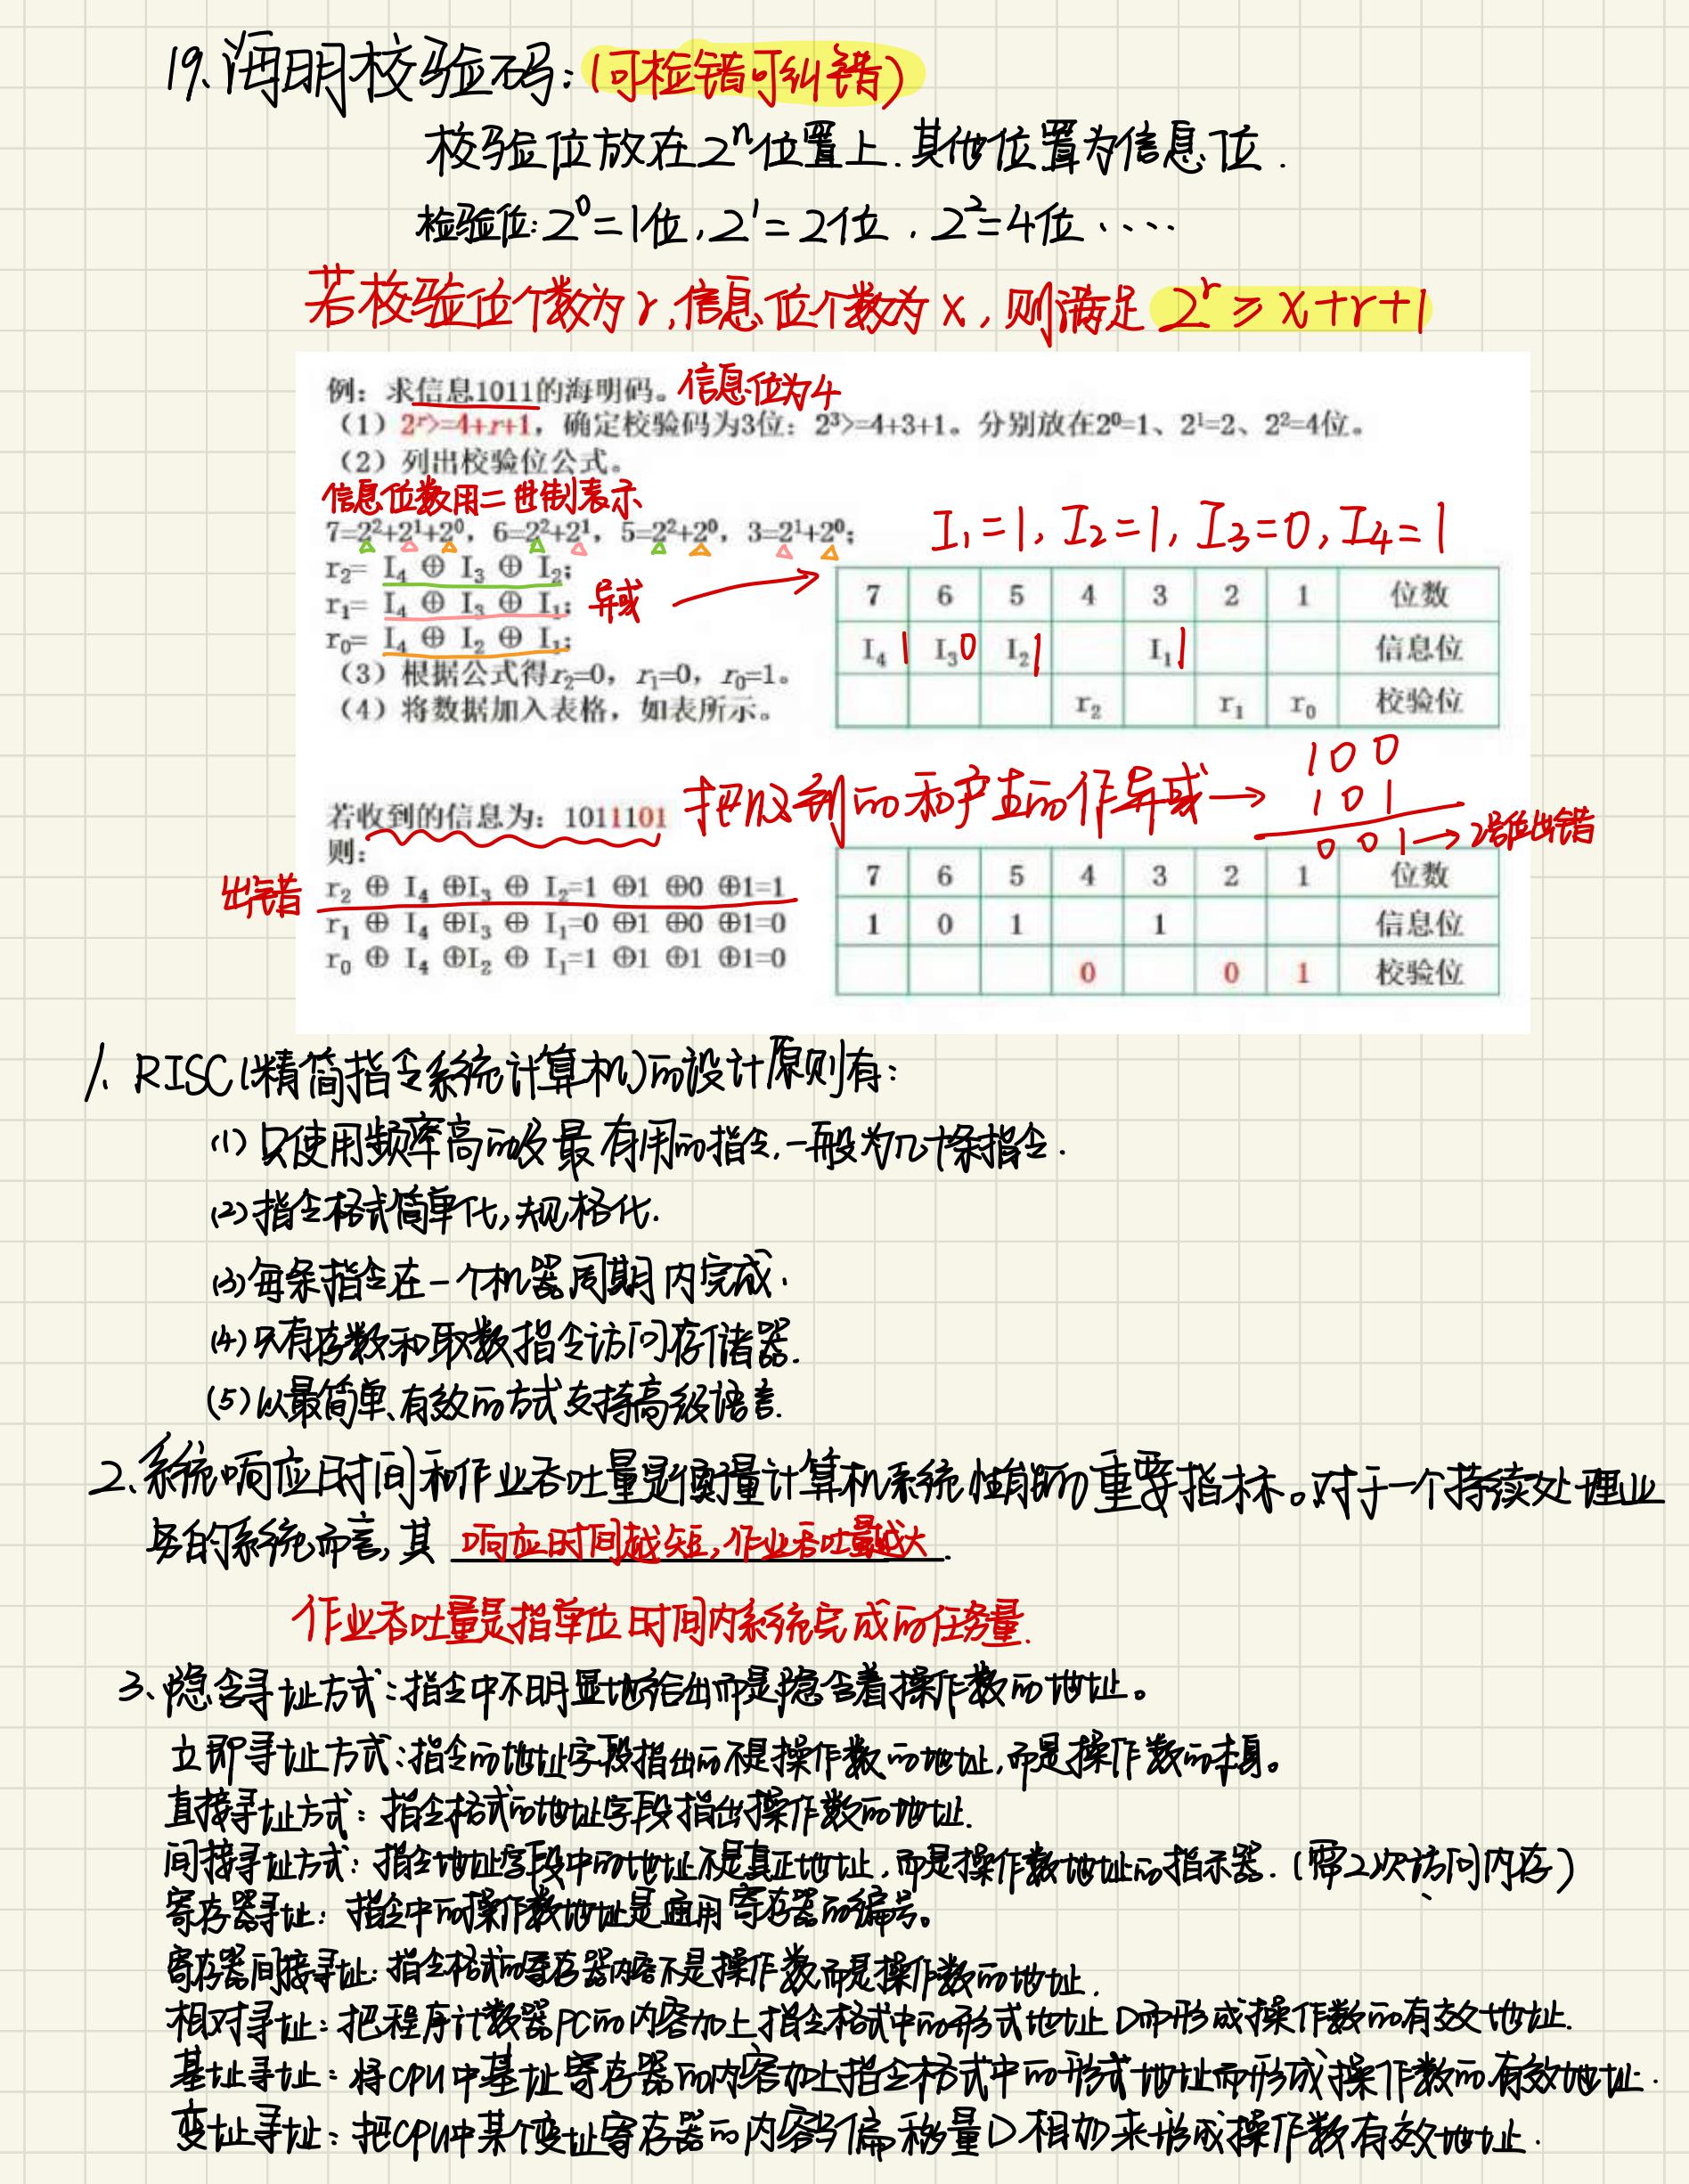 19、海明校验码:(可检错可纠错)
校验位放在2ⁿ位置上.其他位置为信息位.
检验位:2⁰=1位,2¹=2位,2²=4位、、、、
若校验位个数为r,信息位个数为x,则满足 2ʳ≥x+r+1
例:求信息1011的海明码。信息位为4
(1)2ʳ>=4+r+1,确定校验码为3位:2³>=4+3+1。分别放在2⁰=1、2¹=2、2²=4位。
(2)列出校验位公式。
信息位数用二进制表示
7=2²+2¹+2⁰,6=2²+2¹,5=2²+2⁰,3=2¹+2⁰;
I₁=1,I₂=1,I₃=0,I₄=1
r₂= I₄ ⊕ I₃ ⊕ I₂;
r₁= I₄ ⊕ I₃ ⊕ I₁; 异或
r₀= I₄ ⊕ I₂ ⊕ I₁;
(3)根据公式得r₂=0,r₁=0,r₀=1。
(4)将数据加入表格,如表所示。
7 6 5 4 3 2 1 位数
I₄ 1 I₃ 0 I₂ 1 I₁ 1 信息位
r₂ r₁ r₀ 校验位
若收到的信息为:1011101 把收到的和产生的作异或→
100
101
001→2号位出错
则:
出错 r₂ ⊕ I₄ ⊕I₃ ⊕ I₂=1 ⊕1 ⊕0 ⊕1=1
r₁ ⊕ I₄ ⊕I₃ ⊕ I₁=0 ⊕1 ⊕0 ⊕1=0
r₀ ⊕ I₄ ⊕I₂ ⊕ I₁=1 ⊕1 ⊕1 ⊕1=0
7 6 5 4 3 2 1 位数
1 0 1 1 信息位
0 0 1 校验位
1、RISC(精简指令系统计算机)的设计原则有:
(1)只使用频率高的及最有用的指令,一般为几十条指令.
(2)指令格式简单化,规格化.
(3)每条指令在一个机器周期内完成.
(4)只有存数和取数指令访问存储器.
(5)以最简单、有效的方式支持高级语言.
2、系统响应时间和作业吞吐量是衡量计算机系统性能的重要指标。对于一个持续处理业
务的系统而言,其 响应时间越短,作业吞吐量越大.
作业吞吐量是指单位时间内系统完成的任务量.
3、隐含寻址方式:指令中不明显地给出而是隐含着操作数的地址。
立即寻址方式:指令的地址字段指出的不是操作数的地址,而是操作数的本身。
直接寻址方式:指令格式的地址字段指出操作数的地址.
间接寻址方式:指令地址字段中的地址不是真正地址,而是操作数地址的指示器.(需2次访问内存)
寄存器寻址:指令中的操作数地址是通用寄存器的编号。
寄存器间接寻址:指令格式的寄存器内容不是操作数而是操作数的地址.
相对寻址:把程序计数器PC的内容加上指令格式中的形式地址D而形成操作数的有效地址.
基址寻址:将CPU中基址寄存器的内容加上指令格式中的形式地址而形成操作数的有效地址.
变址寻址:把CPU中某个变址寄存器的内容与偏移量D相加来形成操作数有效地址.